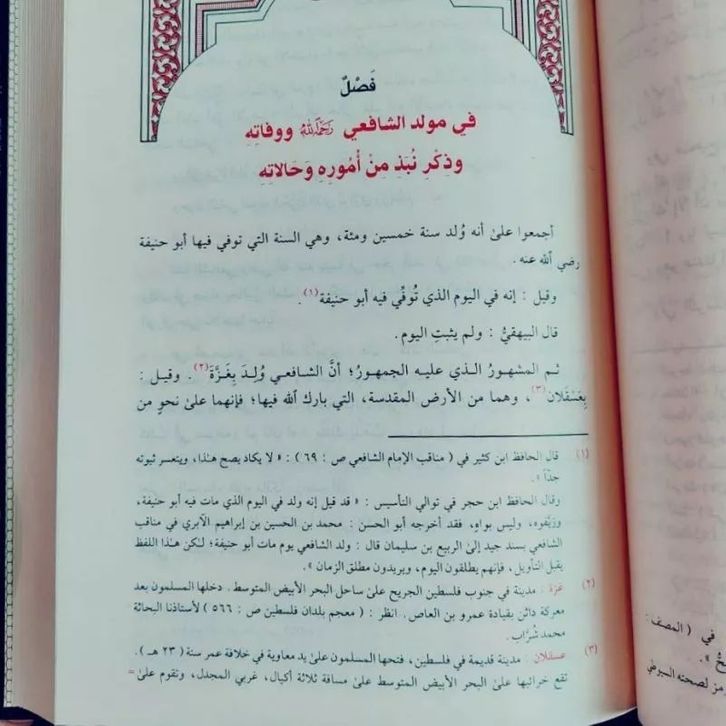 فَصْلٌ
في مولد الشافعي رَحِمَهُ اللهُ ووفاتِهِ
وَذِكْرِ نُبَذٍ مِنْ أُمُورِهِ وَحَالاتِهِ
أجمعوا علىٰ أنه وُلد سنة خمسين ومئة، وهي السنة التي توفي فيها أبو حنيفة
رضي الله عنه.
وقيل : إنه في اليوم الذي تُوفِّي فيه أبو حنيفة(١).
قال البيهقيُّ : ولم يثبتِ اليوم.
ثم المشهورُ الذي عليه الجمهورُ؛ أنَّ الشافعي وُلِدَ بِغَزَّةَ(٢). وقيل :
بِعَسْقَلان(٣)، وهما من الأرض المقدسة، التي بارك الله فيها؛ فإنهما علىٰ نحوٍ من
(١) قال الحافظ ابن كثير في ( مناقب الإمام الشافعي ص : ٦٩ ) : « لا يكاد يصح هذا، ويتعسر ثبوته
جداً ».
وقال الحافظ ابن حجر في توالي التأسيس : « قد قيل إنه ولد في اليوم الذي مات فيه أبو حنيفة،
وزيّفوه، وليس بواهٍ، فقد أخرجه أبو الحسن : محمد بن الحسين بن إبراهيم الآبري في مناقب
الشافعي بسند جيد إلى الربيع بن سليمان قال : ولد الشافعي يوم مات أبو حنيفة؛ لكن هذا اللفظ
يقبل التأويل، فإنهم يطلقون اليوم، ويريدون مطلق الزمان ».
(٢) غزة : مدينة في جنوب فلسطين الجريح علىٰ ساحل البحر الأبيض المتوسط. دخلها المسلمون بعد
معركة داثن بقيادة عمرو بن العاص. انظر : ( معجم بلدان فلسطين ص : ٥٦٦ ) لأستاذنا البحاثة
محمد شُرَّاب.
(٣) عسقلان : مدينة قديمة في فلسطين، فتحها المسلمون علىٰ يد معاوية في خلافة عمر سنة ( ٢٣ هـ ).
تقع خرائبها علىٰ البحر الأبيض المتوسط علىٰ مسافة ثلاثة أكيال، غربي المجدل، وتقوم علىٰ =
في ( المصنف :
».
لصحته السيوطي